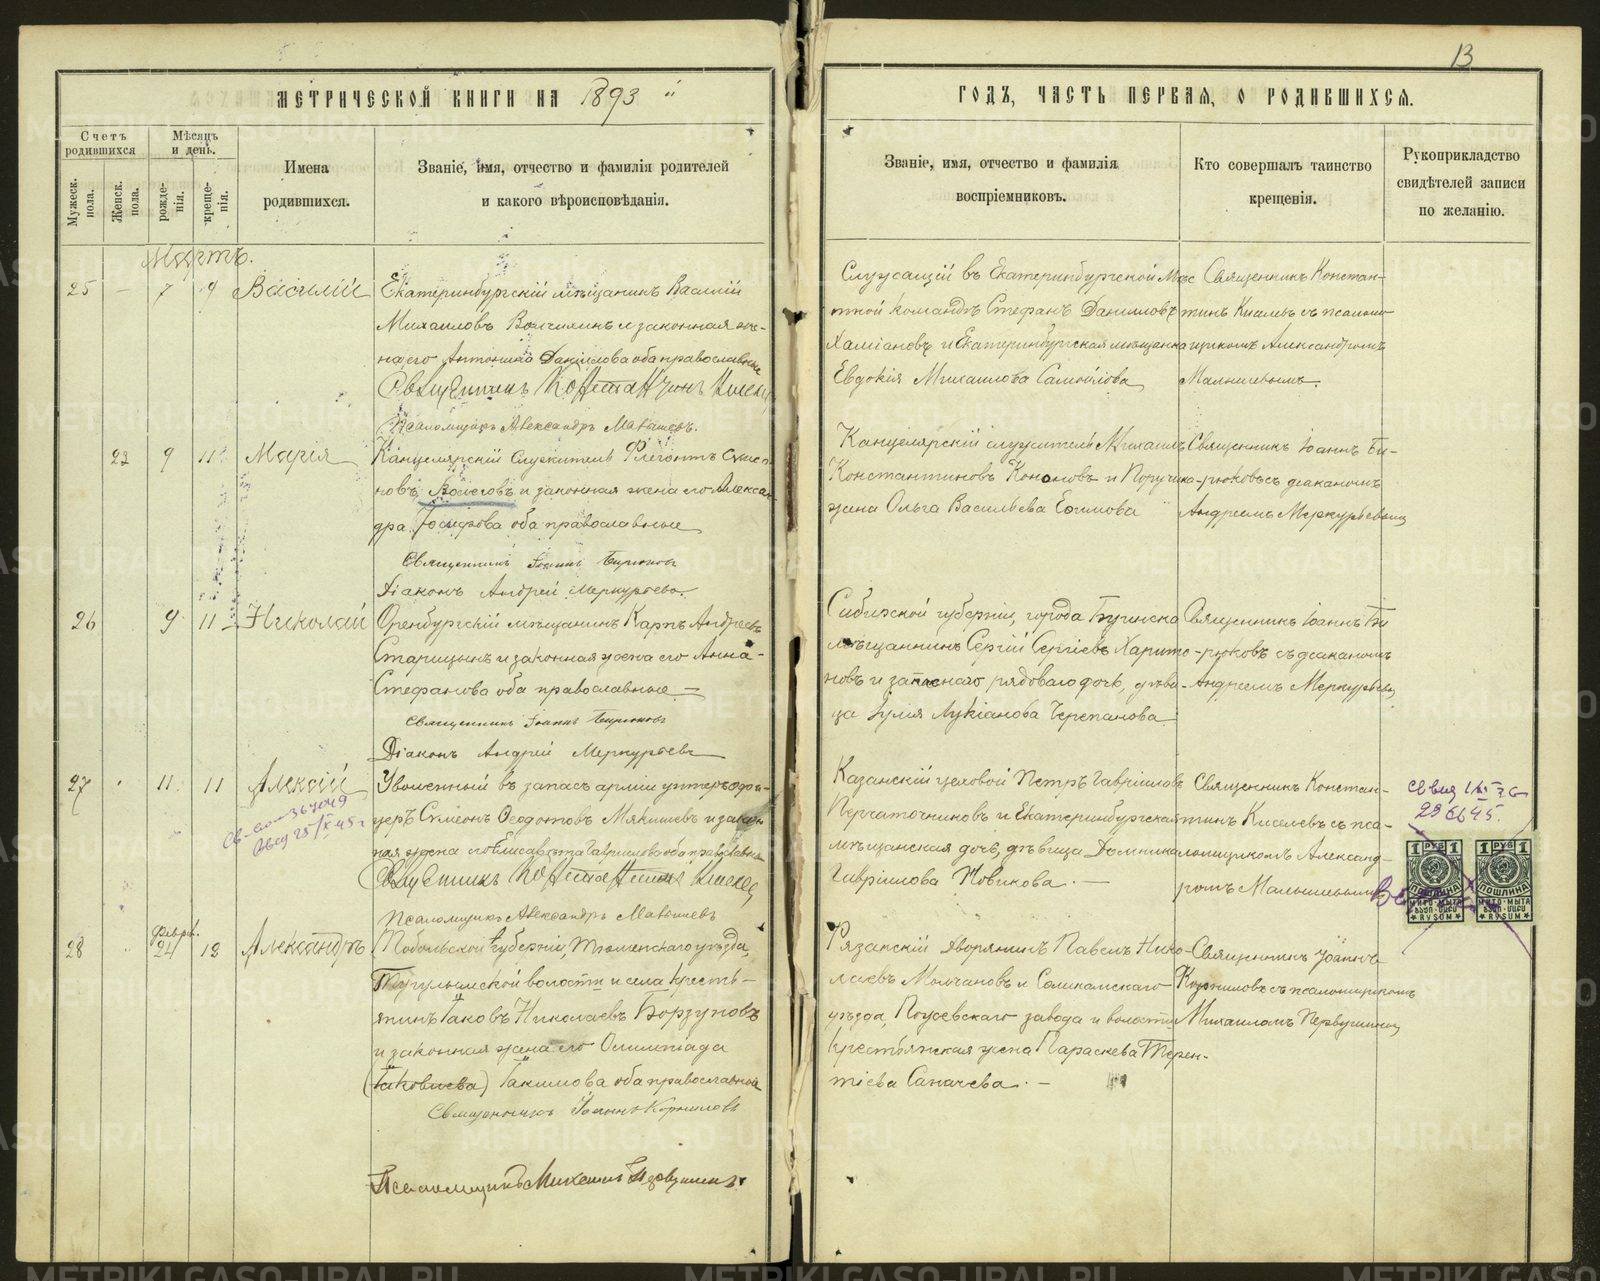 13
МЕТРИЧЕСКОЙ КНИГИ НА 1893
ГОДЪ, ЧАСТЬ ПЕРВАЯ, О РОДИВШИХСЯ.
Счетъ родившихся
Мѣсяцъ и день.
Мужеск. пола.
Женск. пола.
рожде-нія.
креще-нія.
Имена
родившихся.
Званіе, имя, отчество и фамилія родителей
и какого вѣроисповѣданія.
Званіе, имя, отчество и фамилія
воспріемниковъ.
Кто совершалъ таинство
крещенія.
Рукоприкладство
свидѣтелей записи
по желанію.
Мартъ.
25 - 7 9 Василій
Екатеринбургскій мѣщанинъ Василій
Михаиловъ и законная же-
на его Антонина Данилова оба православные
Священникъ Константинъ Киселевъ
Псаломщикъ Александръ Малышевъ.
Служащій въ Екатеринбургской Мѣс
тной командѣ Стефанъ Даниловъ
Харіановъ и Екатеринбургская мѣщанка
Евдокія Михаилова Самойлова
Священникъ Констан-
тинъ Киселевъ съ псалом
щикомъ Александромъ
Малышевымъ.
22 9 11 Марія
Канцелярскій Служитель Флегонтъ Симео-
новъ и законная жена его Алексан-
дра Іосифова оба православные
Священникъ Іоаннъ Бирюковъ
Діаконъ Андрей Меркурьевъ.
Канцелярскій служитель Михаилъ
Константиновъ Кононовъ и Поручика
жена Ольга Васильева Ефимова
Священникъ Іоаннъ Би-
рюковъ съ діакономъ
Андреемъ Меркурьевымъ
26 9 11 Николай
Оренбургскій мѣщанинъ Карпъ Андреевъ
Старицынъ и законная жена его Анна
Стефанова оба православные
Священникъ Іоаннъ Бирюковъ
Діаконъ Андрей Меркурьевъ
Симбирской губерніи, города Буинска
мѣщанинъ Сергій Сергіевъ Харито-
новъ и запаснаго рядоваго дочь, дѣви-
ца Юлія Лукіанова Черепанова
Священникъ Іоаннъ Би
рюковъ съ діакономъ
Андреемъ Меркурьевы
27 11 11 Алексій
Уволенный въ запасъ арміи унтеръ офи-
церъ Симеонъ Ѳеодотовъ Мякишевъ и закон
ная жена его Елисавета Гавриилова оба православные
Священникъ Константинъ Киселевъ
Псаломщикъ Александръ Малышевъ
Казанскій цеховой Петръ Гавріиловъ
Перчаточниковъ и Екатеринбургская
мѣщанская дочь, дѣвица Домника
Гавріилова Новикова.
Священникъ Констан-
тинъ Киселевъ съ пса-
ломщикомъ Александ-
ромъ Малышевымъ
1 РУБ 1
ПОШЛИНА
1 РУБ 1
ПОШЛИНА
28 Февр. 24 12 Александръ
Тобольской губерніи, Тюменскаго уѣзда,
Тугулымской волости и села кресть-
янинъ Іаковъ Николаевъ Борзуновъ
и законная жена его Олимпіада
(Іаковлева) Іакимова оба православные
Священникъ Іоаннъ Корниловъ
Псаломщикъ Михаилъ Первушинъ.
Рязанскій дворянинъ Павелъ Нико-
лаевъ Молчановъ и Соликамскаго
уѣзда, Пожевскаго завода и волости
крестьянская жена Параскева Терен-
тіева Саначева.
Священникъ Іоаннъ
Корниловъ съ псаломщикомъ
Михаиломъ Первушинымъ
METRIKI.GASO-URAL.RU